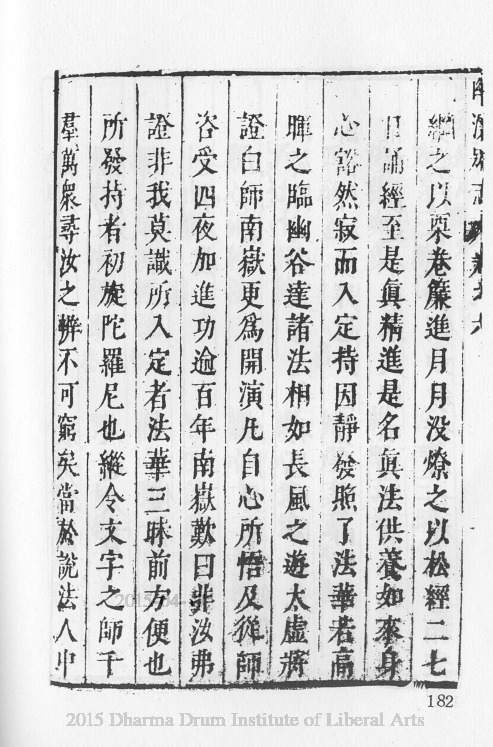 卷之六
繼之以栗卷簾進月月没燎之以松經二七
日誦經至是眞精進是名眞法供養如來身
心豁然寂而入定持因靜發照了法華若高
暉之臨幽谷達諸法相如長風之遊太虛將
證白師南嶽更爲開演凡自心所悟及從師
咨受四夜加進功逾百年南嶽歎曰非汝弗
證非我莫識所入定者法華三昧前方便也
所發持者初旋陀羅尼也縱令文字之師千
羣萬衆尋汝之辯不可窮矣當於說法人中
182
2015 Dharma Drum Institute of Liberal Arts